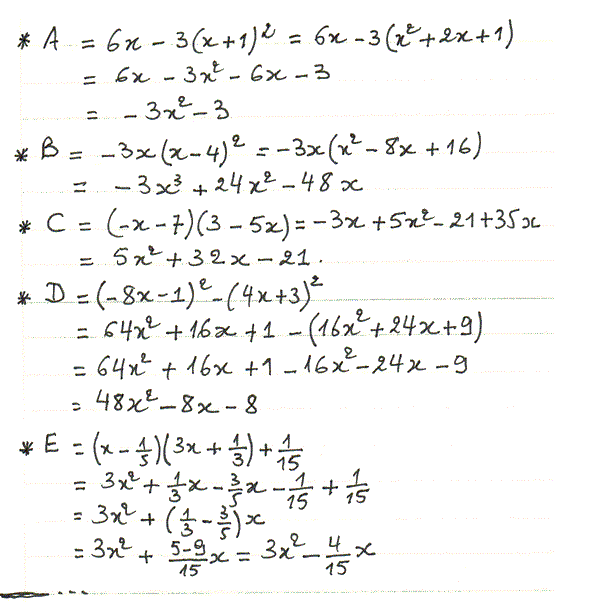 * A = 6x - 3(x+1)² = 6x - 3(x²+2x+1)
= 6x - 3x² - 6x - 3
= - 3x² - 3
* B = -3x(x-4)² = -3x(x² - 8x + 16)
= - 3x³ + 24x² - 48x
* C = (-x-7)(3-5x) = -3x + 5x² - 21 + 35x
= 5x² + 32x - 21.
* D = (-8x-1)² - (4x+3)²
= 64x² + 16x + 1 - (16x² + 24x + 9)
= 64x² + 16x + 1 - 16x² - 24x - 9
= 48x² - 8x - 8
* E = (x - 1/5)(3x + 1/3) + 1/15
= 3x² + 1/3 x - 3/5 x - 1/15 + 1/15
= 3x² + (1/3 - 3/5)x
= 3x² + 5-9/15 x = 3x² - 4/15 x